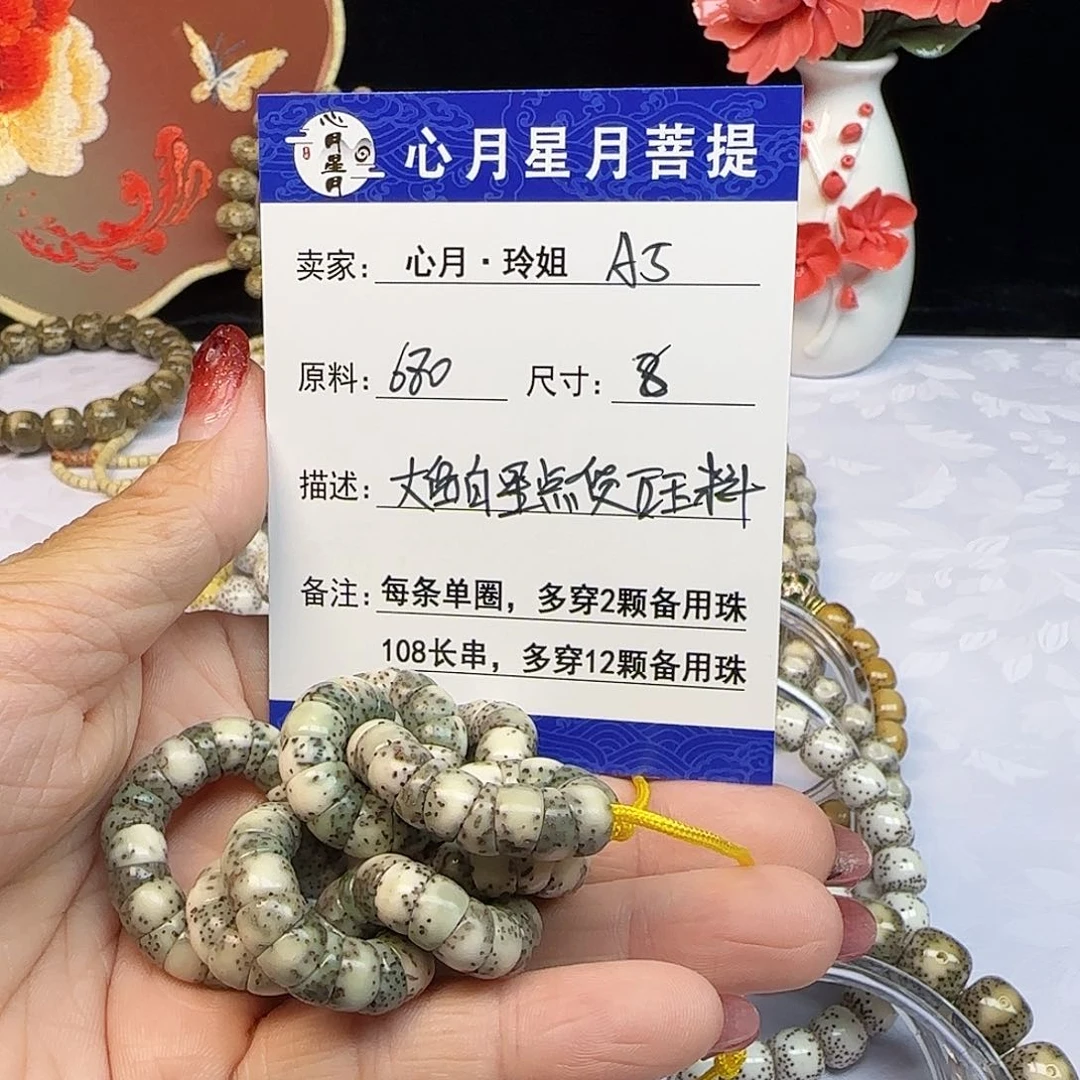 心月星月
心月星月菩提
卖家： 心月·玲姐 A5
原料： 680 尺寸： 8
描述： 大
备注： 每条单圈，多穿2颗备用珠
108长串，多穿12颗备用珠